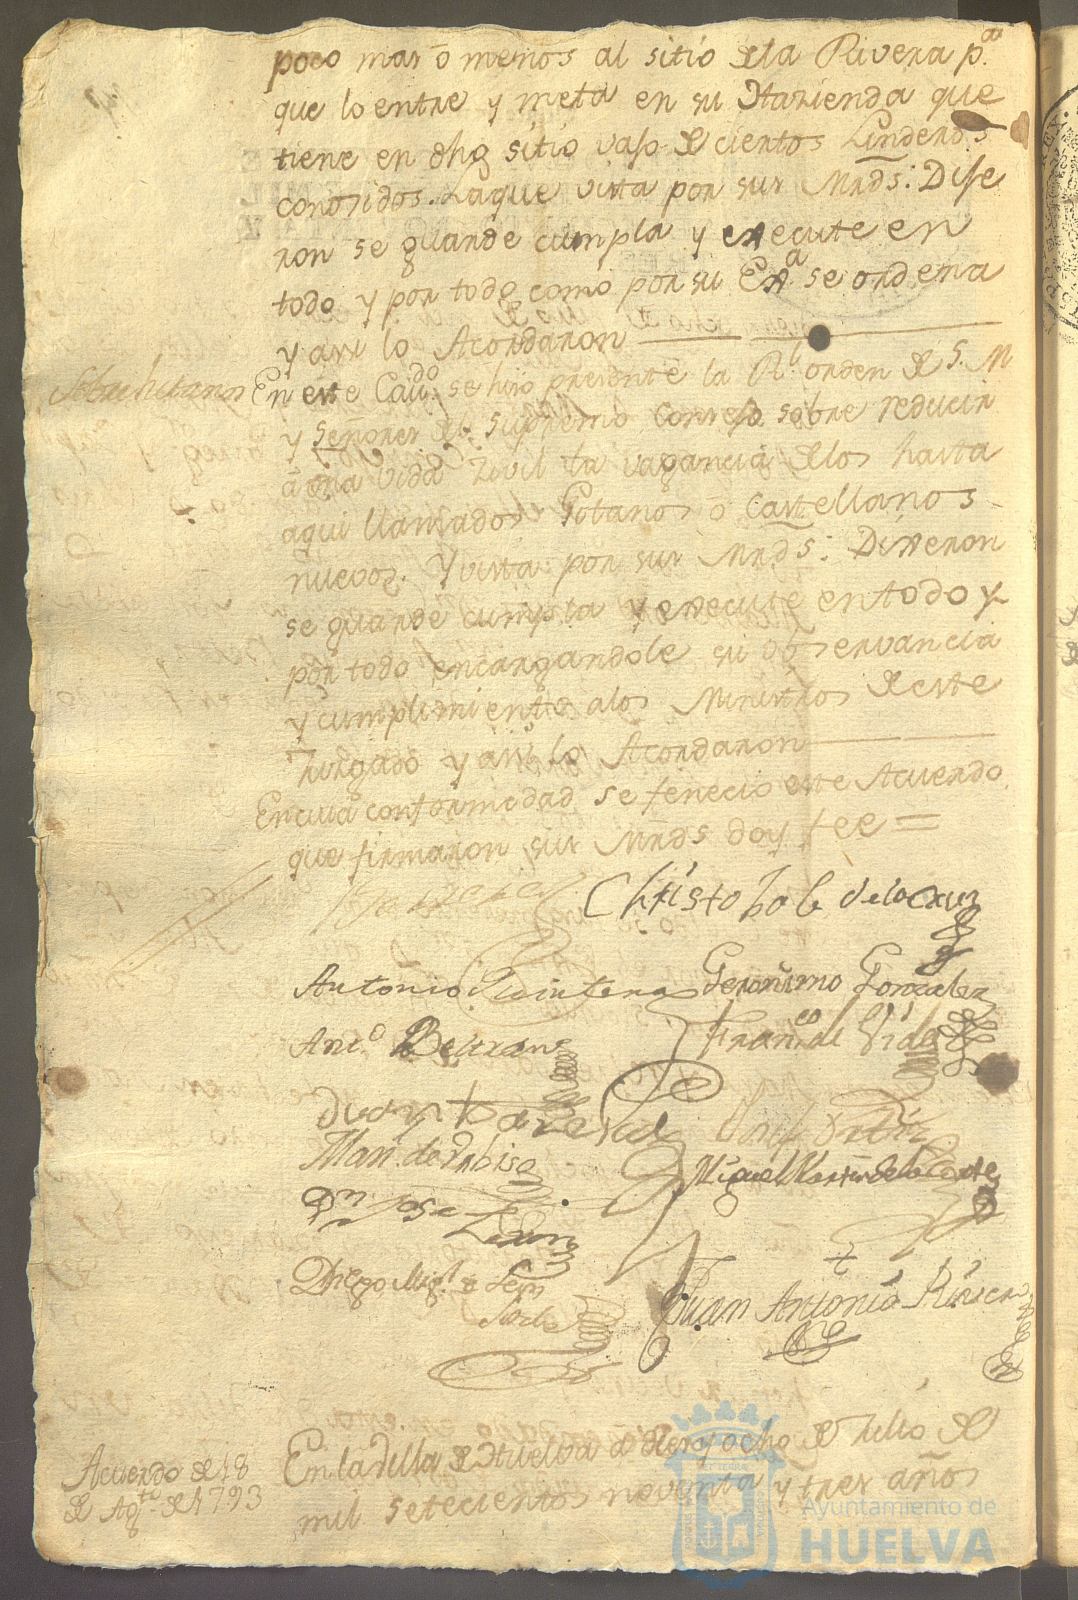 poco mas ô menos al sitio de la Rivera p.ª
que lo entre y meta en su Hazienda que
tiene en dho sitio vajo de ciertos Linderos
conosidos. La que vista por sus Mrds: Dije
ron se guarde cumpla y execute en
todo y por todo como por su Ex.ª se ordena
y assi lo Acordaron
Sobre hitanos
En este Cav.do se hizo presente la R.l orden de S. M
y señores del supremo Consejo sobre reducir
â una vida Zivil la vagancia de los hasta
aqui llamados Gitanos ô Castellanos
nuevos. Y vista por sus Mrds: Dixeron
se guarde cumpla y execute en todo y
por todo encargandole su observancia
y cumplimiento a los Ministros de este
Jusgado y assi lo Acordaron
En cuia conformidad se fenecio este Acuerdo
que firmaron sus Mrds doy fee =
Christobal de la Cruz
Antonio Quintero Geronimo Gonzalez
Ant.o Beltran Fran.co del Vida
Juan
Man. de
Miguel Martin de la
Dn Jose Leon
Diego Mig.l de Leon
Juan Antonio
Acuerdo de 18
de Ag.to de 1793
En la Villa de Huelva a Diez y ocho de Julio de
mil setecientos noventa y tres años
Ayuntamiento de
HUELVA